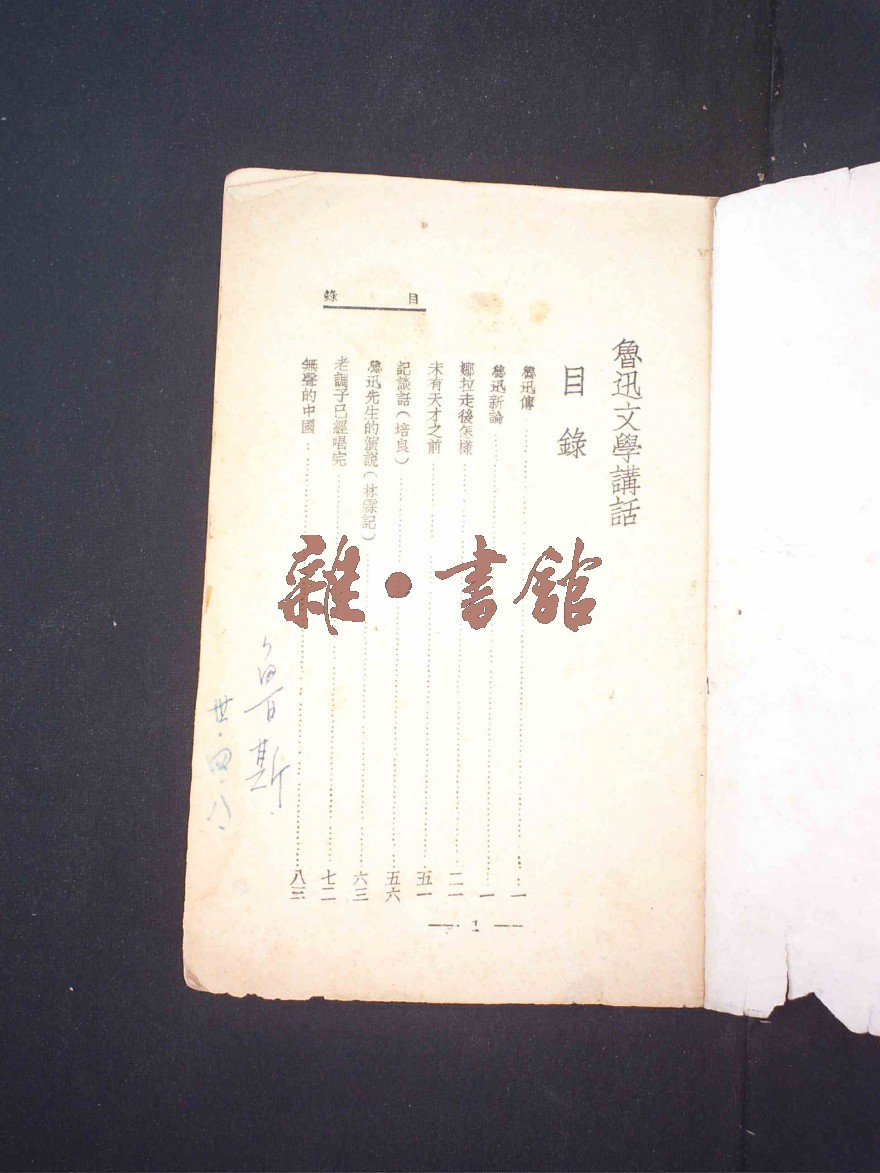 魯迅文學講話
目錄
魯迅傳……一
魯迅新論……一
娜拉走後怎樣……二一
未有天才之前……五一
記談話(培良)……五六
魯迅先生的演說(林霖記)……六三
老調子已經唱完……七二
無聲的中國……八三
目錄
— 1 —
雜•書館